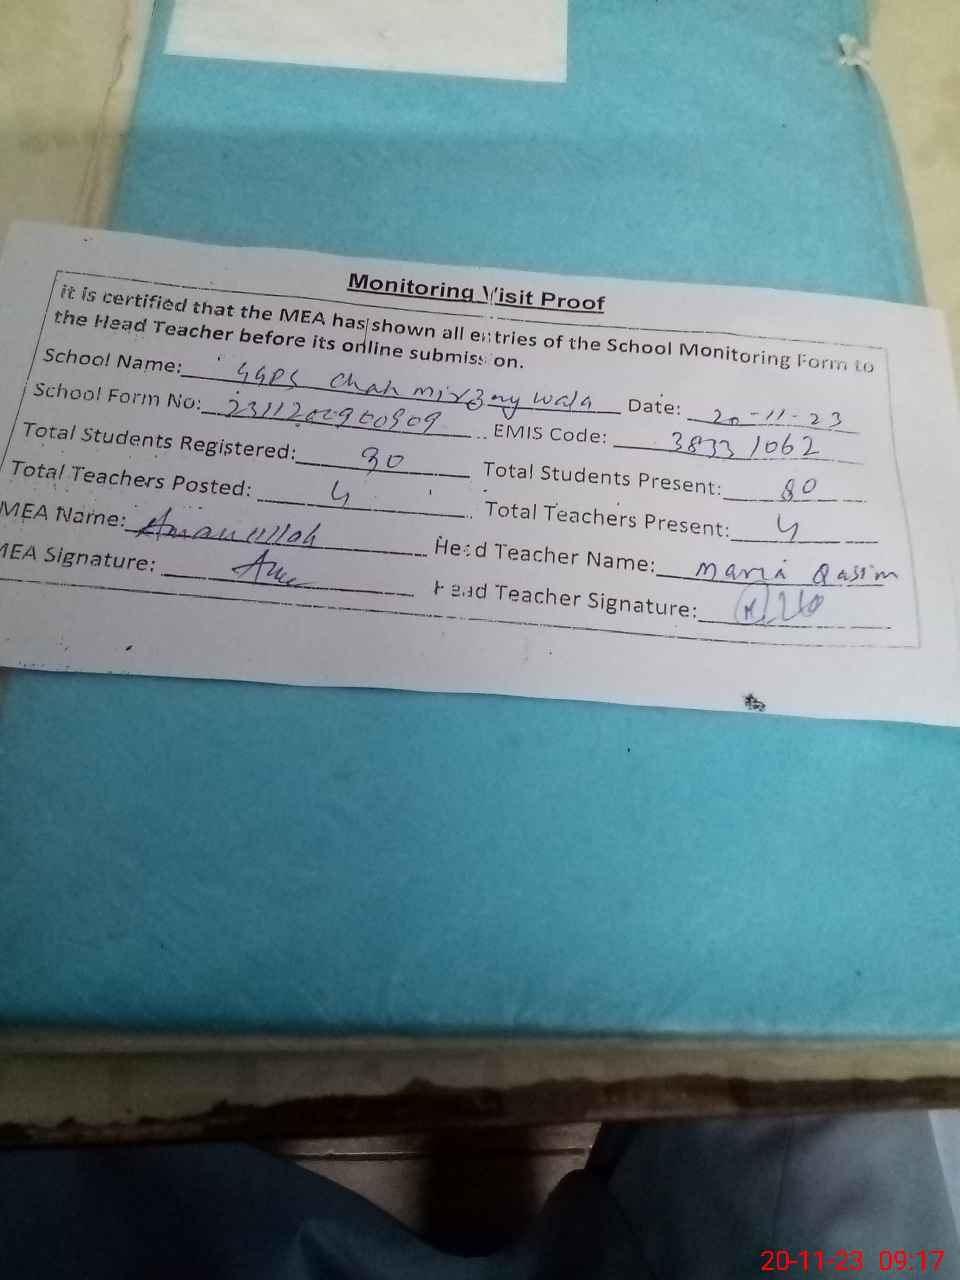 Monitoring Visit Proof
it is certified that the MEA has shown all entries of the School Monitoring Form to
the Head Teacher before its online submission.
School Name: GGPS Chah Wala Date: 20-11-23
School Form No: EMIS Code: 38331062
Total Students Registered: Total Students Present: 80
Total Teachers Posted: 4 Total Teachers Present: 4
MEA Name: Amanullah Head Teacher Name: Maria Qasim
MEA Signature: Head Teacher Signature:
20-11-23 09:17